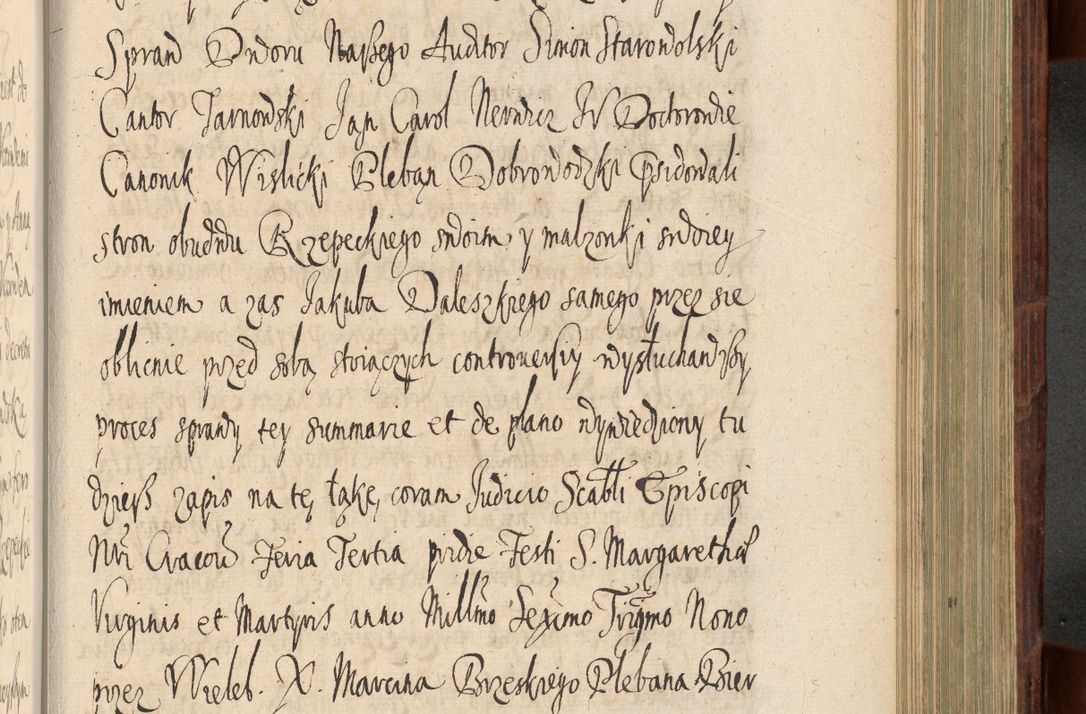 Spraw Dworu Naszego Auditor Simon Starowolski
Cantor Tarnowski Jan Carol Nerwicz JV Doctorowie
Canonik Wislicki Pleban Dobrowodzki
stron obudwu Rzepeckiego swoim y malzonki swoiey
imieniem a zas Jakuba Daleszkiego samego przez sie
oblicnie przed sobą stoiączych controuersiy wysłuchawszy
proces sprawy tey summarie et de plano wywiedziony tu
dzieß zapis na tę łąkę, coram Judicio Scabłi Episcopi
Nri Cracou Feria Tertia pridie Festi S. Margarethæ
Virginis et Martyris anno Millmo Sexmo Trigmo Nono
przez Wieleb. X. Marcina Brzeskiego Plebana Bier